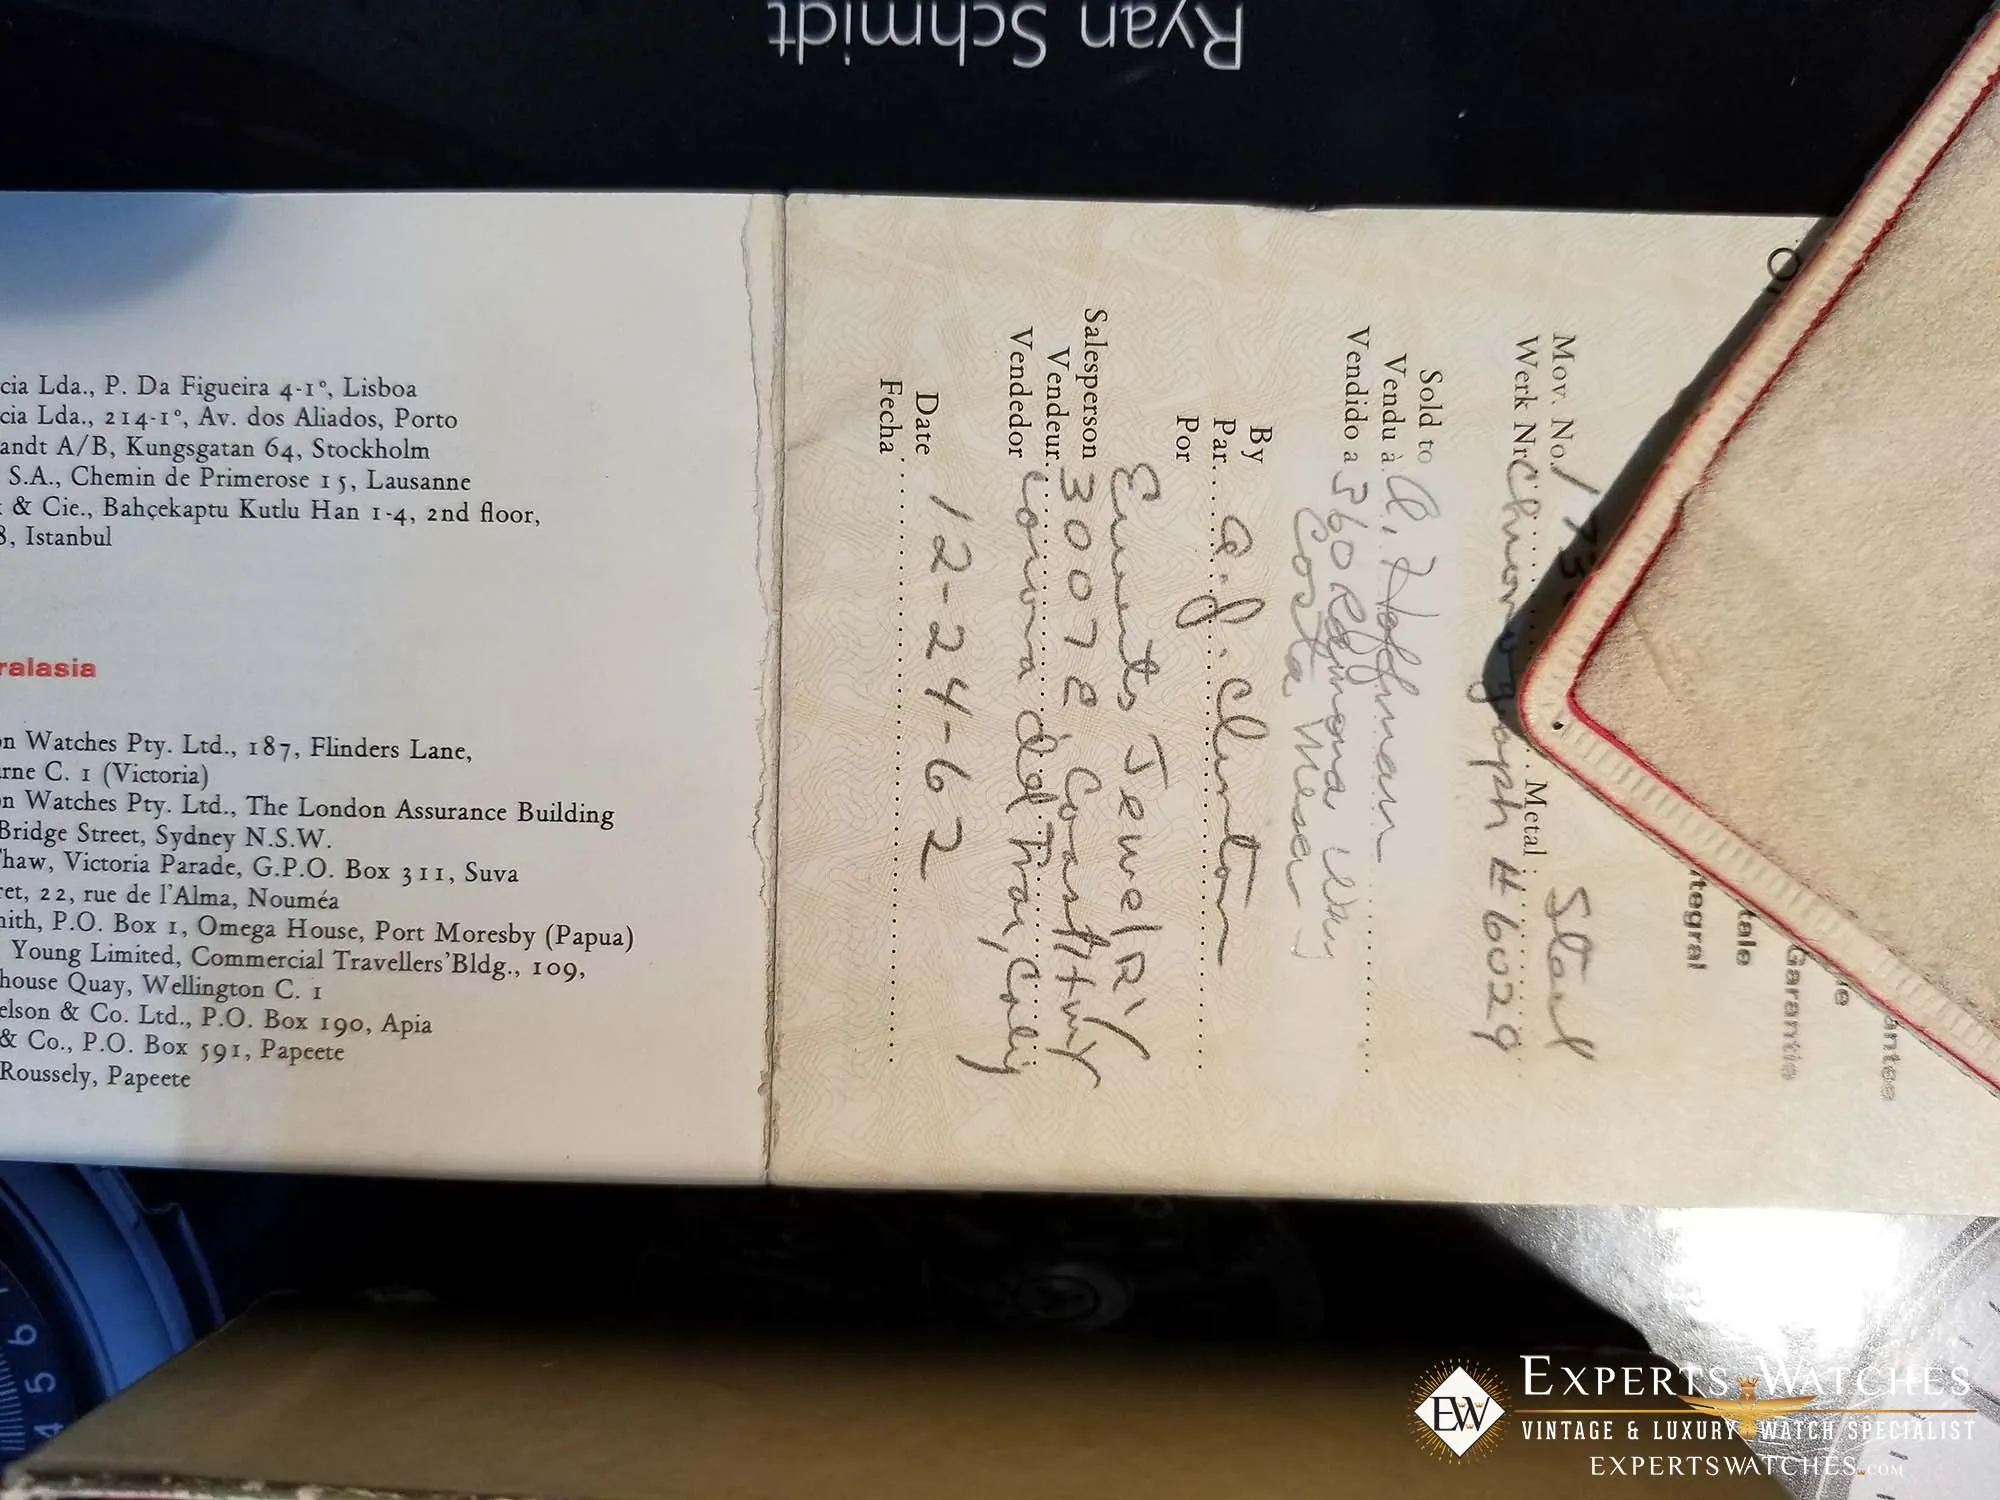 Ryan Schmidt
cia Lda., P. Da Figueira 4-1°, Lisboa
cia Lda., 214-1°, Av. dos Aliados, Porto
andt A/B, Kungsgatan 64, Stockholm
S.A., Chemin de Primerose 15, Lausanne
& Cie., Bahçekaptu Kutlu Han 1-4, 2nd floor,
8, Istanbul
ralasia
n Watches Pty. Ltd., 187, Flinders Lane,
rne C. 1 (Victoria)
n Watches Pty. Ltd., The London Assurance Building
Bridge Street, Sydney N.S.W.
haw, Victoria Parade, G.P.O. Box 311, Suva
et, 22, rue de l'Alma, Nouméa
nith, P.O. Box 1, Omega House, Port Moresby (Papua)
Young Limited, Commercial Travellers' Bldg., 109,
house Quay, Wellington C. 1
elson & Co. Ltd., P.O. Box 190, Apia
& Co., P.O. Box 591, Papeete
Roussely, Papeete
antee
Garantie
tale
tegral
Mov. No. Metal Steel
Werk Nr. Chronograph # 6029
Sold to
Vendu à A. Hoffman
Vendido a 360 Ramona Way
Costa Mesa
By
Par A. J. Clinton
Por
Ernests Jewelr's
Salesperson 3007 E Coast Hwy
Vendeur
Vendedor Corona del Mar, Calif
Date 12-24-62
Fecha
6
5
4
EW
EXPERTS WATCHES
VINTAGE & LUXURY WATCH SPECIALIST
EXPERTSWATCHES.COM